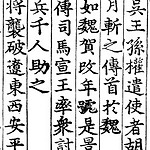 吳王孫權遣使者胡
月斬之傳首於魏
如魏賀改年號是景
傳司馬宣王率衆討
兵千人助之
將襲破遼東西安平